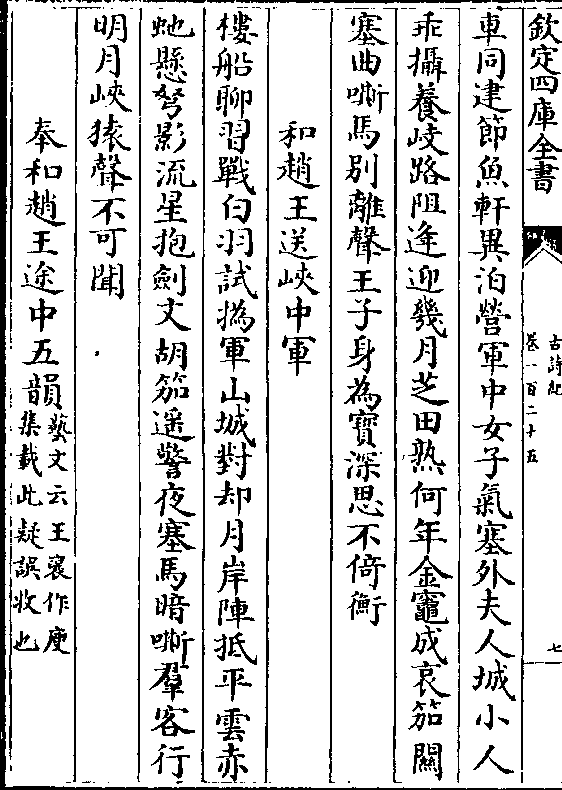 欽定四庫全書
古詩紀
卷一百二十五
七
車同建節魚軒異泊營軍中女子氣塞外夫人城小人
乖攝養岐路阻逢迎幾月芝田熟何年金竈成哀笳關
塞曲嘶馬別離聲王子身為寶深思不倚衡
和趙王送峽中軍
樓船聊習戰白羽試撝軍山城對却月岸陣抵平雲赤
虵懸弩影流星抱劍文胡笳遥警夜塞馬暗嘶羣客行
明月峽猿聲不可聞
奉和趙王途中五韻藝文云王褒作庾
集載此疑誤收也